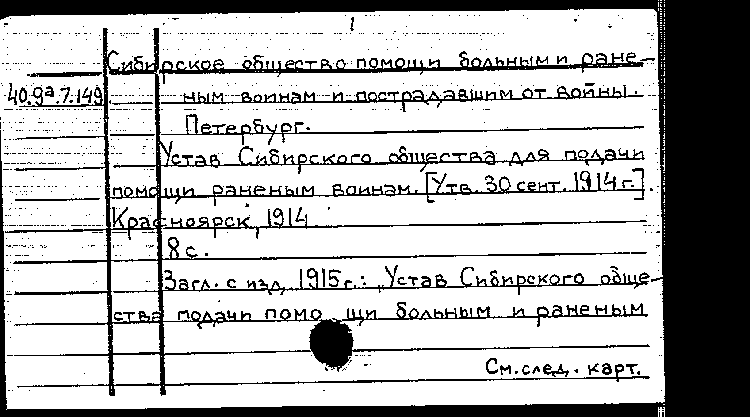 1
Сибирское общество помощи больным и ране-
40.9а.7.149 ным воинам и пострадавшим от войны.
Петербург.
Устав Сибирского общества для подачи
помощи раненым воинам. [Утв. 30 сент. 1914 г.].
Красноярск, 1914.
8 с.
Загл. с изд. 1915 г.: „Устав Сибирского обще-
ства подачи помощи больным и раненым
См. след. карт.